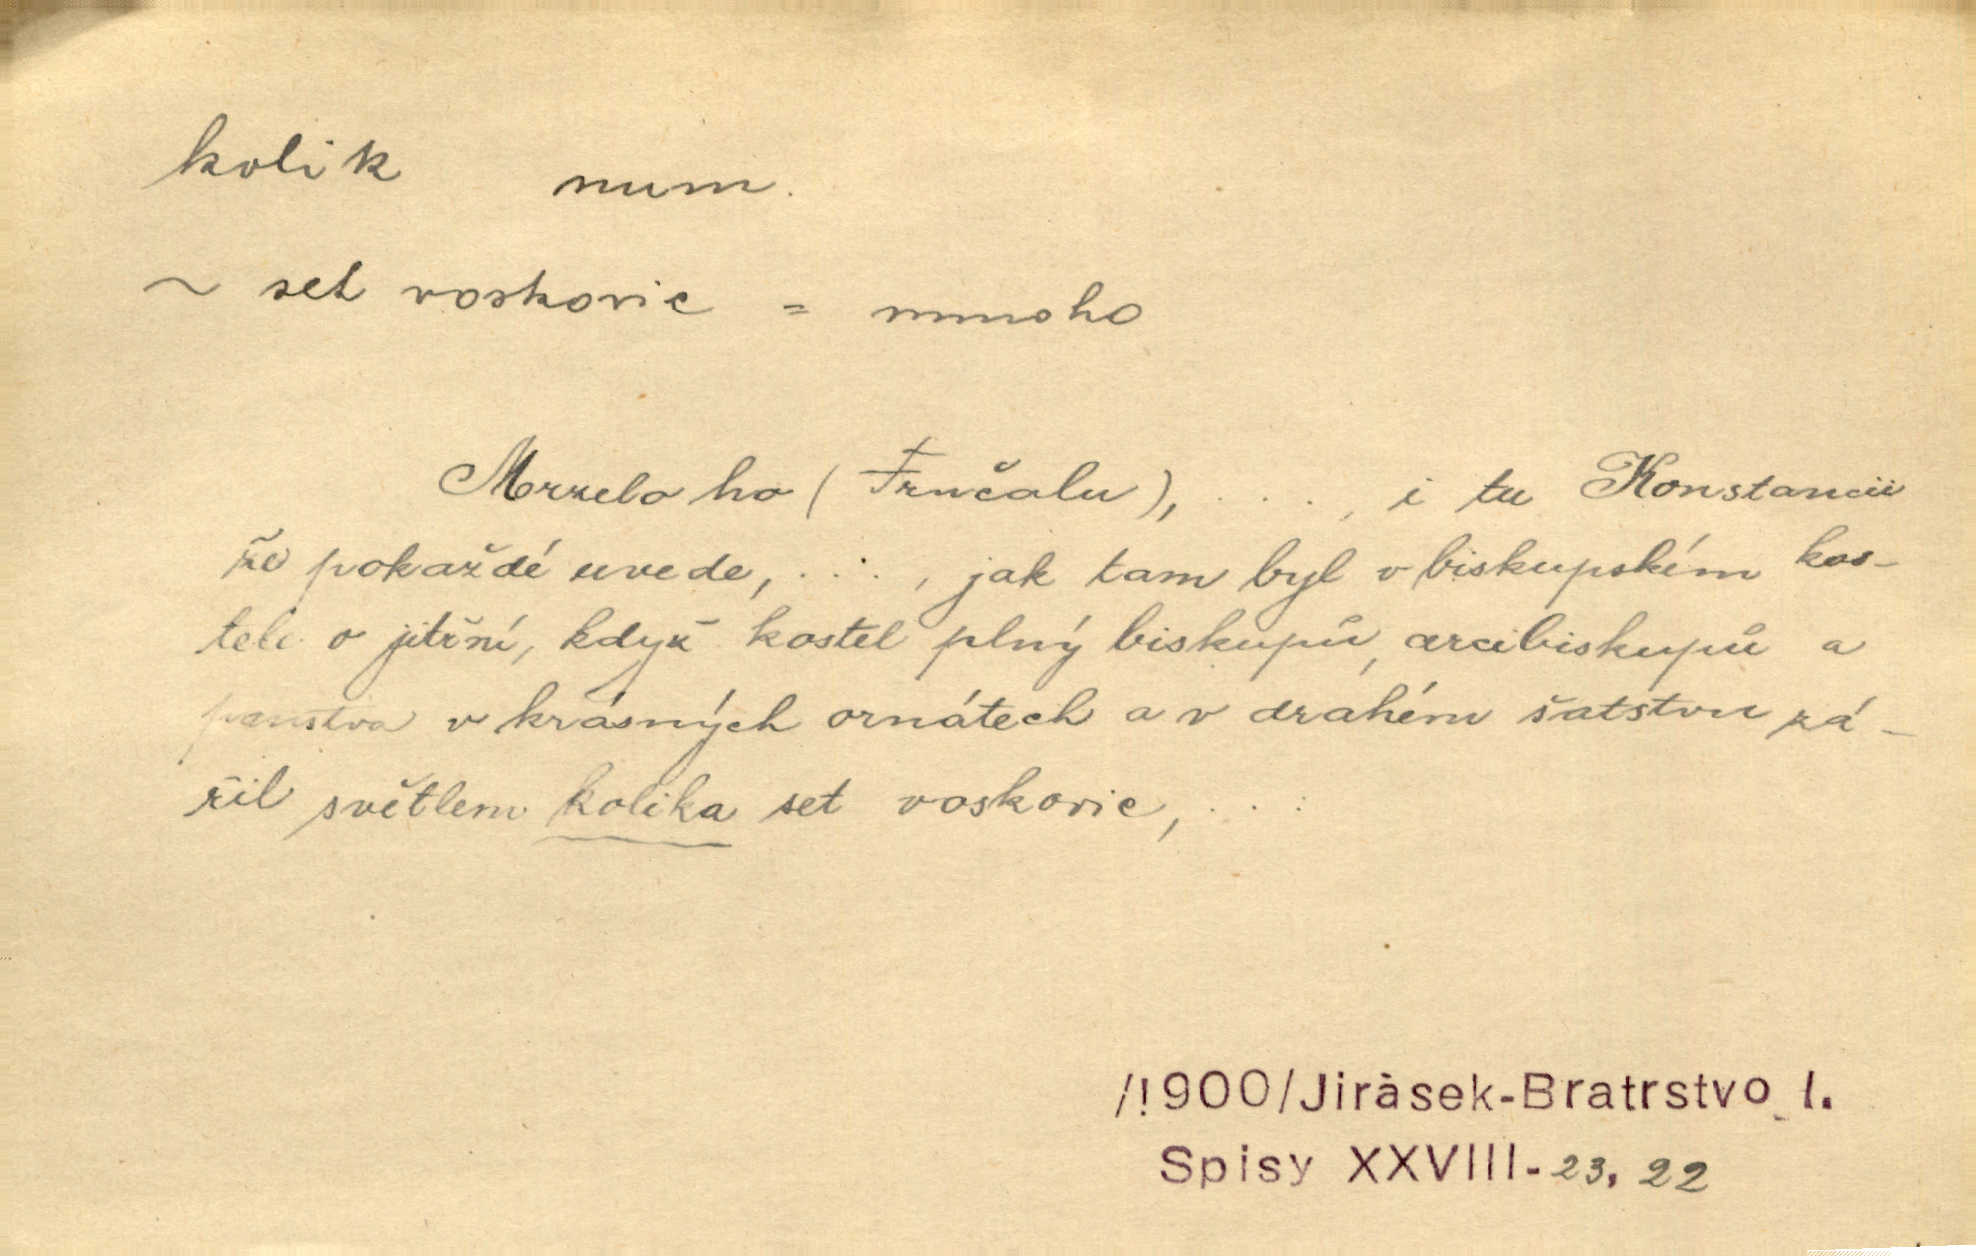 kolik num.
~ set voskovic = mnoho
Mrzelo ho (Frnčalu), . . . , i tu Konstancii
že pokaždé uvede, . . . , jak tam byl v biskupském kos-
tele o jitřní, když kostel plný biskupů, arcibiskupů a
panstva v krásných ornátech a v drahém šatstvu zá-
řil světlem kolika set voskovic, . . .
/1900/Jirásek-Bratrstvo I.
Spisy XXVIII-23, 22